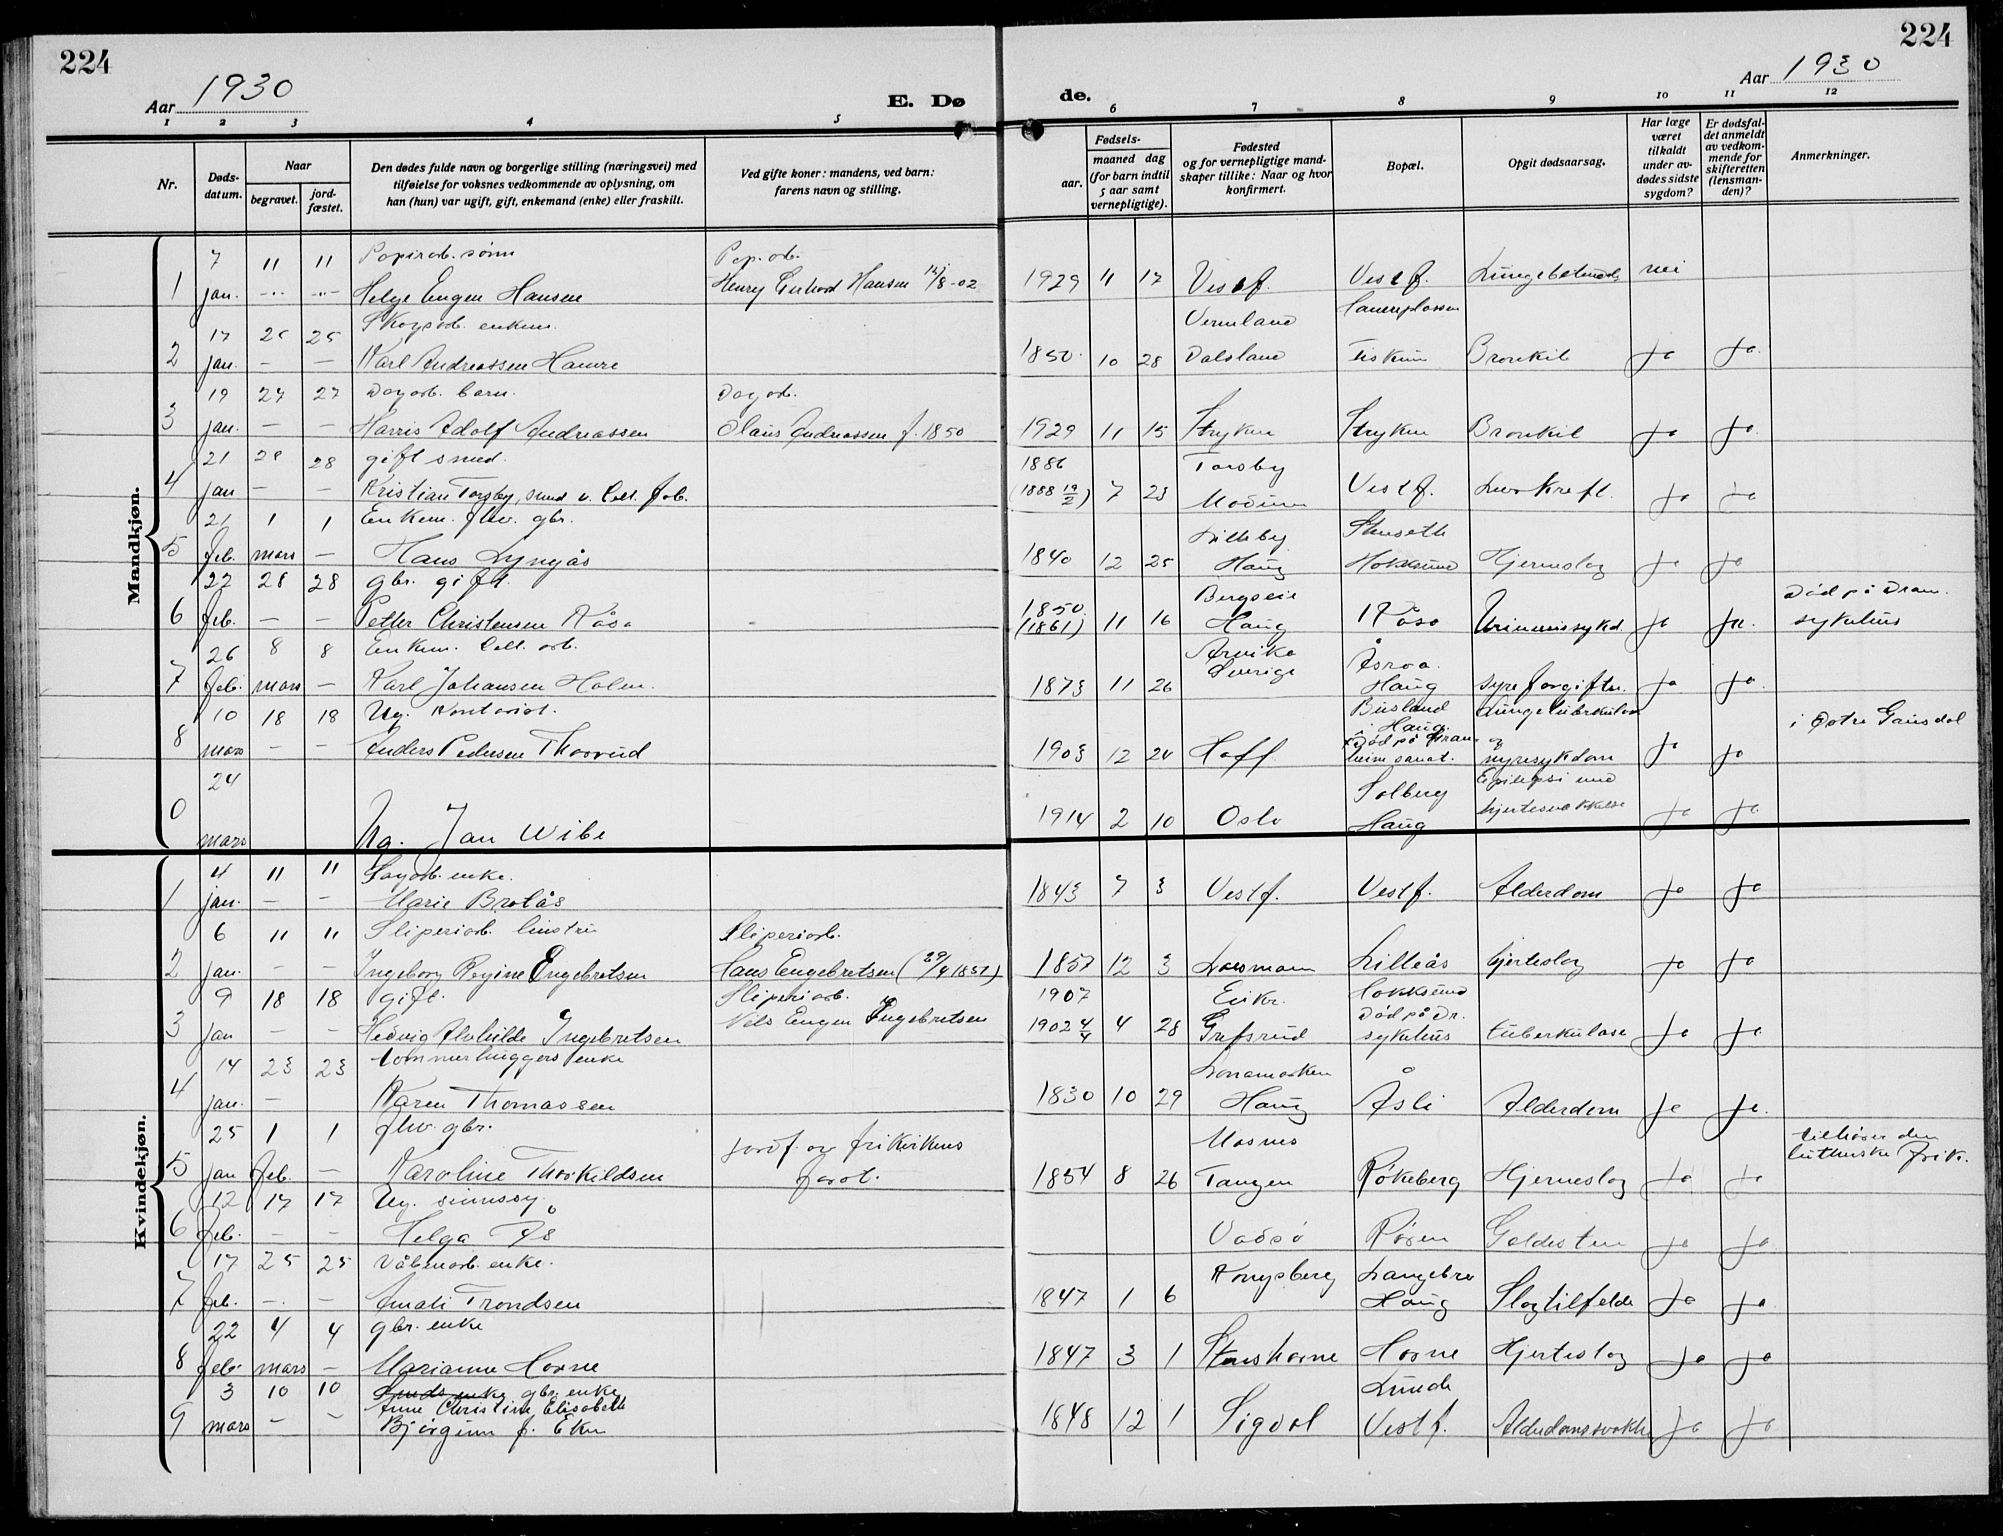 224
224
Aar 1930
E. Dø
de.
Aar 1930
1 2 3 4 5 6 7 8 9 10 11 12
Nr.
Døds-
datum.
Naar
begravet.
jord-
fæstet.
Den dødes fulde navn og borgerlige stilling (næringsvei) med
tilføielse for voksnes vedkommende av oplysning, om
han (hun) var ugift, gift, enkemand (enke) eller fraskilt.
Ved gifte koner: mandens, ved barn:
farens navn og stilling.
Fødsels-
aar.
maaned dag
(for barn indtil
5 aar samt
vernepligtige).
Fødested
og for vernepligtige mand-
skaper tillike: Naar og hvor
konfirmert.
Bopæl.
Opgit dødsaarsag.
Har læge
været
tilkaldt
under av-
dødes sidste
sygdom?
Er dødsfal-
det anmeldt
av vedkom-
mende for
skifteretten
(lensman-
den)?
Anmerkninger.
Mandkjøn.
7 11 11 Papirarb. sønn Pap. arb.
1 jan. Helge Eugen Hansen Henry Hansen 12/8-02 1929 11 17 Vestf. Vestf. nei
17 25 25 Skogsarb. enkem. Vermland
2 jan. – – Karl Andreassen Hamre 1850 10 28 Dalsland Fiskum Bronkit ja ja
19 27 27 Dagarb. barn. Dagarb.
3 jan. – – Harris Adolf Andreassen Olaus Andreassen f. 1850 1929 11 15 Stryken Stryken Bronkit ja ja
21 28 28 gift smed. 1886 Torsby
4 jan – – Kristian Torsby, smed v. Cell. fab. (1888 19/2) 7 23 Modum Vestf. ja ja
21 1 1 Enkem. fhv. gbr. Lilleby Stenseth
5 feb. mars – Hans Lyngås 1840 12 25 Haug Hokksund Hjerneslag ja ja
22 28 28 gbr. gift. Bergseie Død på Dram.
6 feb. – – Petter Christensen Råsa 1850 (1861) 11 16 Haug Råsa ja ja sykehus
26 8 8 Enkem. Cell. arb. Arvika
7 feb. mars – Karl Johansen Holm. 1873 11 26 Sverige Haug syreforgiftn. ja ja
10 18 18 Ug. Kontorist. Busland Lungetuberkulose i Østre Gausdal
8 mars – – Anders Pedersen Thorrud 1903 12 24 Hoff i Haug nyresykdom ja ja
24 Solberg Epilepsi med
0 mars Ug. Jan Wibe 1914 2 10 Oslo Haug hjertesvækkelse ja ja
Kvindekjøn.
4 11 11 Sagarb. enke.
1 jan. – – Marie Bråtås 1843 7 3 Vestf. Vestf. Alderdom ja ja
6 11 11 Sliperiarb. hustru Sliperiarb.
2 jan. – – Ingeborg Regine Engebretsen Hans Engebretsen (29/4 1851) 1857 12 3 Lilleås hjerteslag ja ja
9 18 18 gift. Sliperiarb. 1907 Eiker. Hokksund
3 jan – – Hedvig Alvhilde Ingebretsen Nils Eugen Ingebretsen 1902 4/4 4 28 Grefsrud Død på Dr. sykehus tuberkulose ja ja
14 23 23 tømmerhuggers enke
4 jan. – Karen Thomassen 1830 10 29 Haug Åsli Alderdom ja ja
25 1 1 fhv. gbr. jordf. av frikirkens Masnes tilhører den
5 jan feb. – Karoline Thorkildsen forst. 1854 8 26 Tangen Røkeberg Hjerneslag ja ja lutherske frik.
12 17 17 Ug. sinnssyg
6 feb. – – Helga Ås Vadsø Røren Galdesten ja ja
17 25 25 Våbenarb. enke. Kongsberg Langebru
7 feb. – – Amali Trondsen 1847 1 6 Haug Slagtilfelde ja ja
22 4 4 gbr. enke
8 feb. mars – Marianne Horne 1847 3 1 Stenshorne Horne Hjerteslag ja ja
3 10 10 gbr. enke Lunde
Anne Christine Elisabeth
9 mars – – Bjørgum f. Eker 1848 12 1 Sigdal Vestf. ja ja